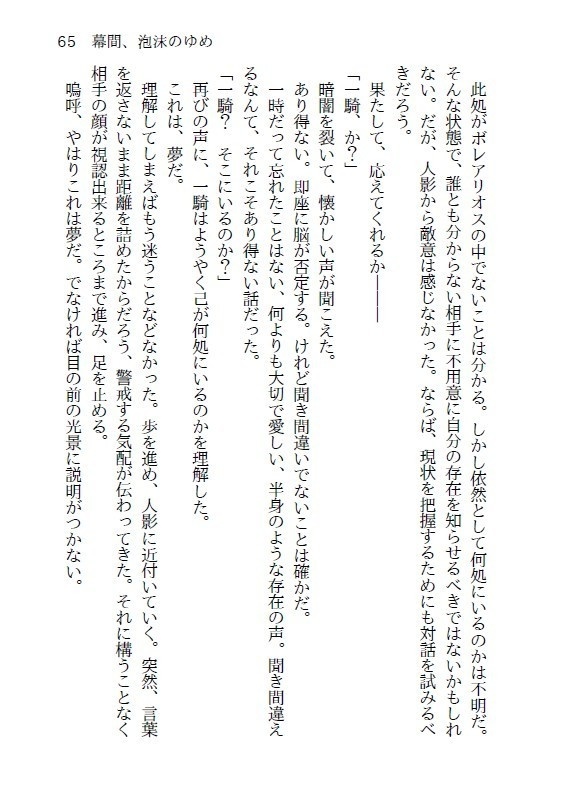 65　幕間、泡沫のゆめ
　此処がボレアリオスの中でないことは分かる。しかし依然として何処にいるのかは不明だ。
そんな状態で、誰とも分からない相手に不用意に自分の存在を知らせるべきではないかもしれ
ない。だが、人影から敵意は感じなかった。ならば、現状を把握するためにも対話を試みるべ
きだろう。
　果たして、応えてくれるか―――
「一騎、か？」
　暗闇を裂いて、懐かしい声が聞こえた。
　あり得ない。即座に脳が否定する。けれど聞き間違いでないことは確かだ。
　一時だって忘れたことはない、何よりも大切で愛しい、半身のような存在の声。聞き間違え
るなんて、それこそあり得ない話だった。
「一騎？　そこにいるのか？」
　再びの声に、一騎はようやく己が何処にいるのかを理解した。
　これは、夢だ。
　理解してしまえばもう迷うことなどなかった。歩を進め、人影に近付いていく。突然、言葉
を返さないまま距離を詰めたからだろう、警戒する気配が伝わってきた。それに構うことなく
相手の顔が視認出来るところまで進み、足を止める。
　嗚呼、やはりこれは夢だ。でなければ目の前の光景に説明がつかない。